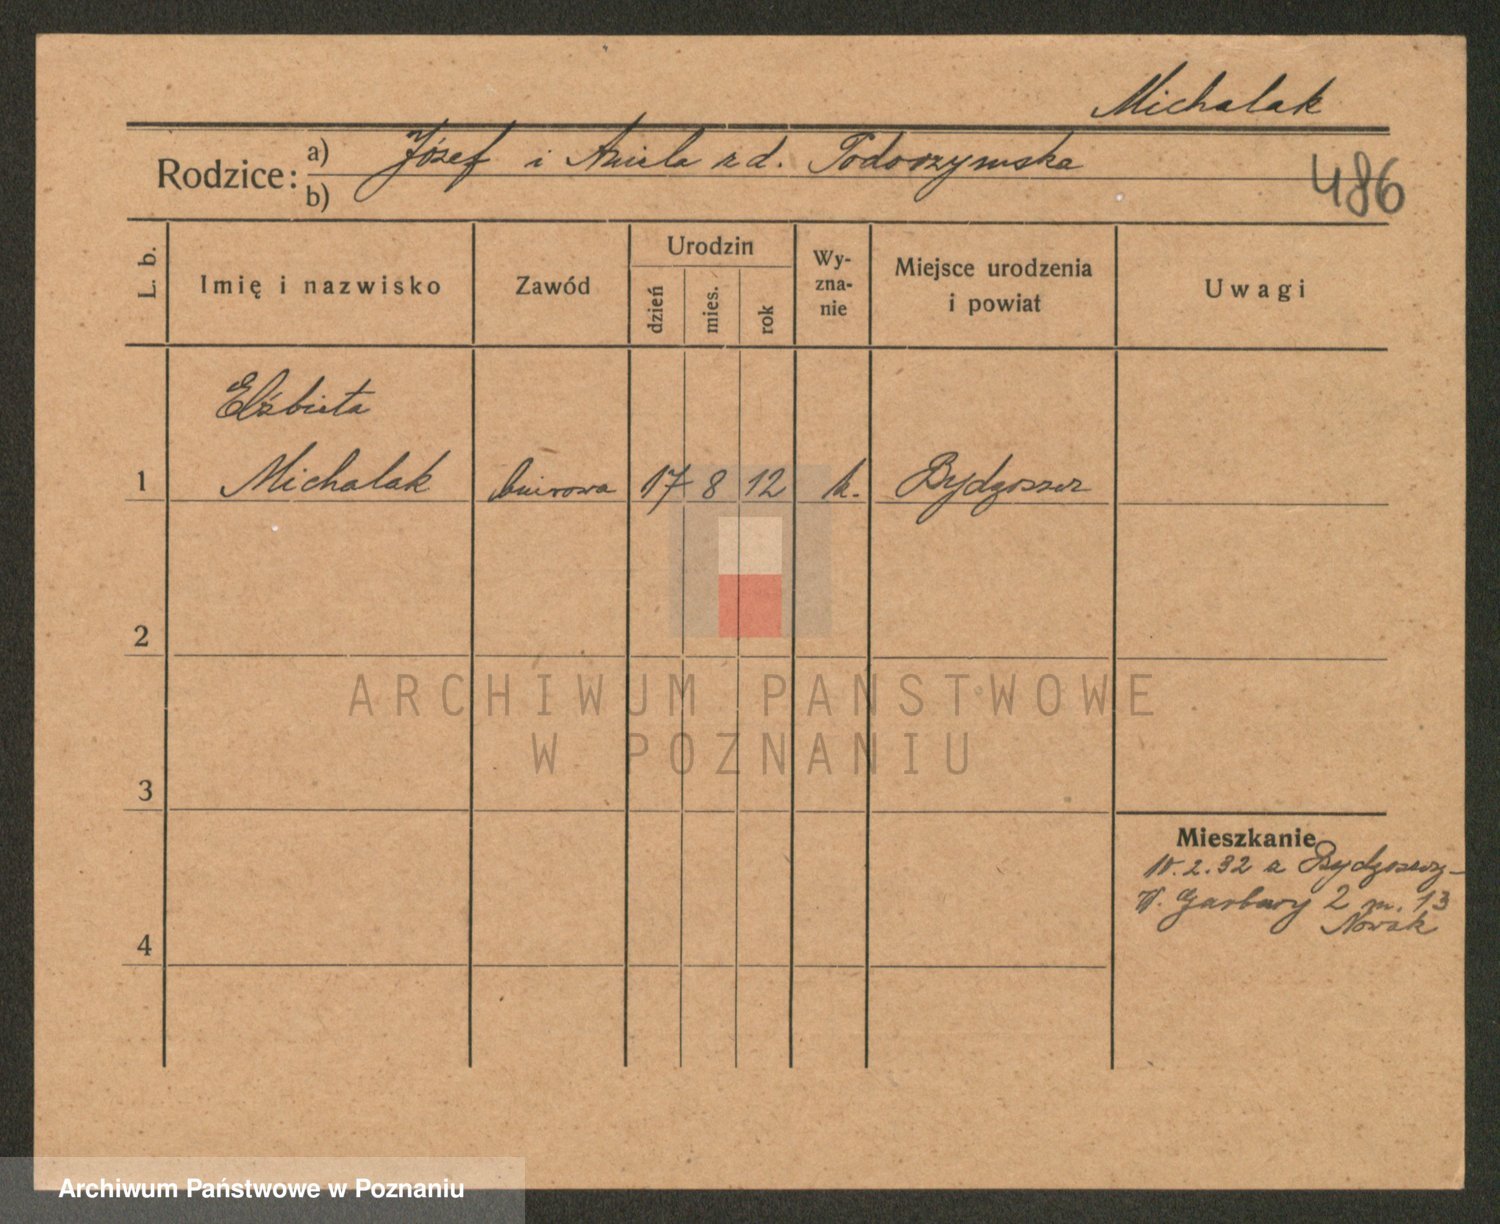 Michalak
Rodzice: a) Józef i Aniela z d.
b)
486
L. b.
Imię i nazwisko
Zawód
Urodzin
dzień
mies.
rok
Wy-
zna-
nie
Miejsce urodzenia
i powiat
Uwagi
Elżbieta
1 Michalak biurowa 17 8 12 k. Bydgoszcz
2
ARCHIWUM PAŃSTWOWE
W POZNANIU
3
Mieszkanie
10.2.32 z Bydgoszczy
W. Garbary 2 m. 13
Nowak
4
Archiwum Państwowe w Poznaniu